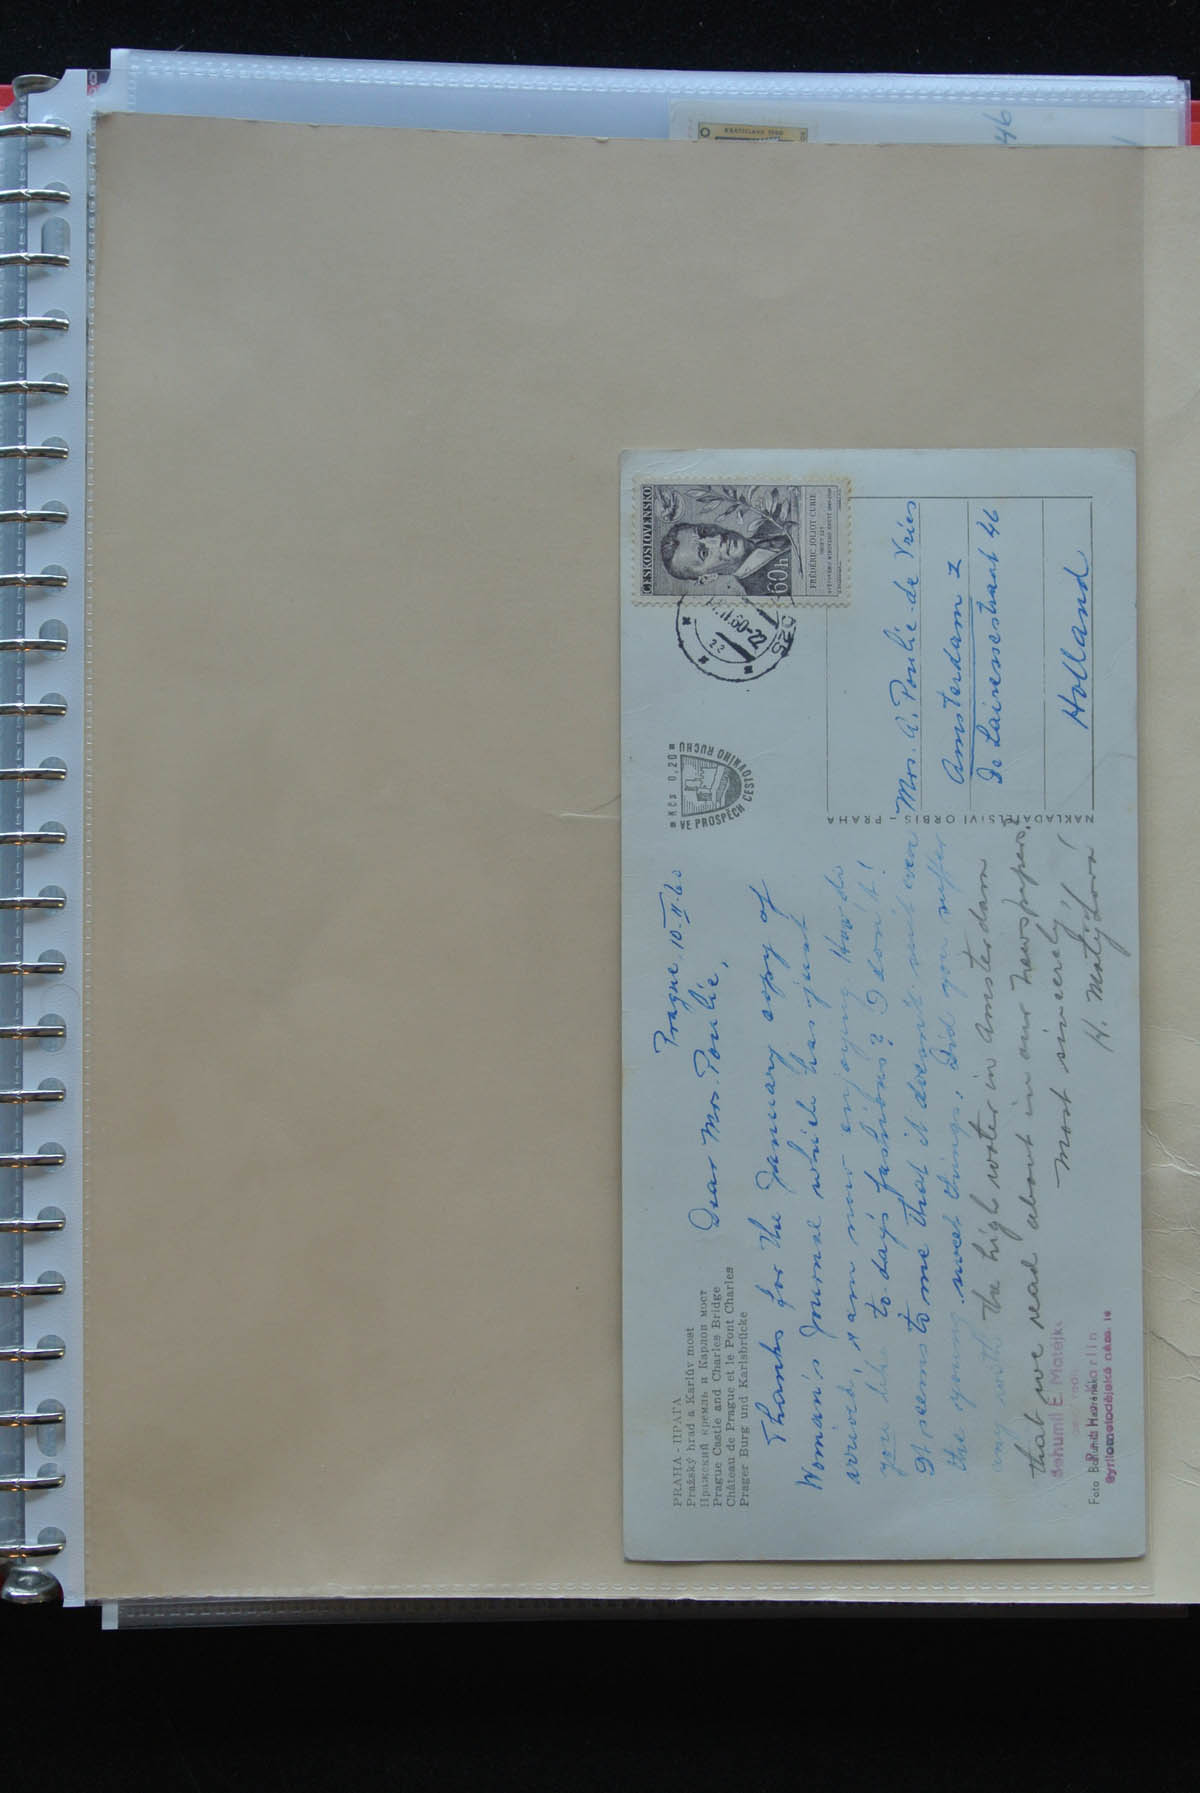 BRATISLAVA 1960
46
PRAHA - ПРАГА
Pražský hrad a Karlův most
Пражский кремль и Карлов мост
Prague Castle and Charles Bridge
Château de Prague et le Pont Charles
Prager Burg und Karlsbrücke
Prague, 10-II-60
Dear Mrs. Poulie,
Thanks for the January copy of
Woman's Journal which has just
arrived, I am now enjoying. How do
you like to-day's fashions? I don't!
It seems to me that it doesn't suit even
the young sweet things. Did you suffer
any with the high water in Amsterdam
that we read about in our newspapers.
Most sincerely,
H. Matějková
Bohumil E. Matějka
Praha-Karlín
Cyrilometodějské nám.
Foto
Kčs 0,20
VE PROSPĚCH CESTOVNÍHO RUCHU
NAKLADATELSTVÍ ORBIS, PRAHA
ČESKOSLOVENSKO
60h
FRÉDÉRIC JOLIOT CURIE
II.60-22
Mrs. A. Poulie-de Vries
Amsterdam Z
De Lairessestraat 46
Holland